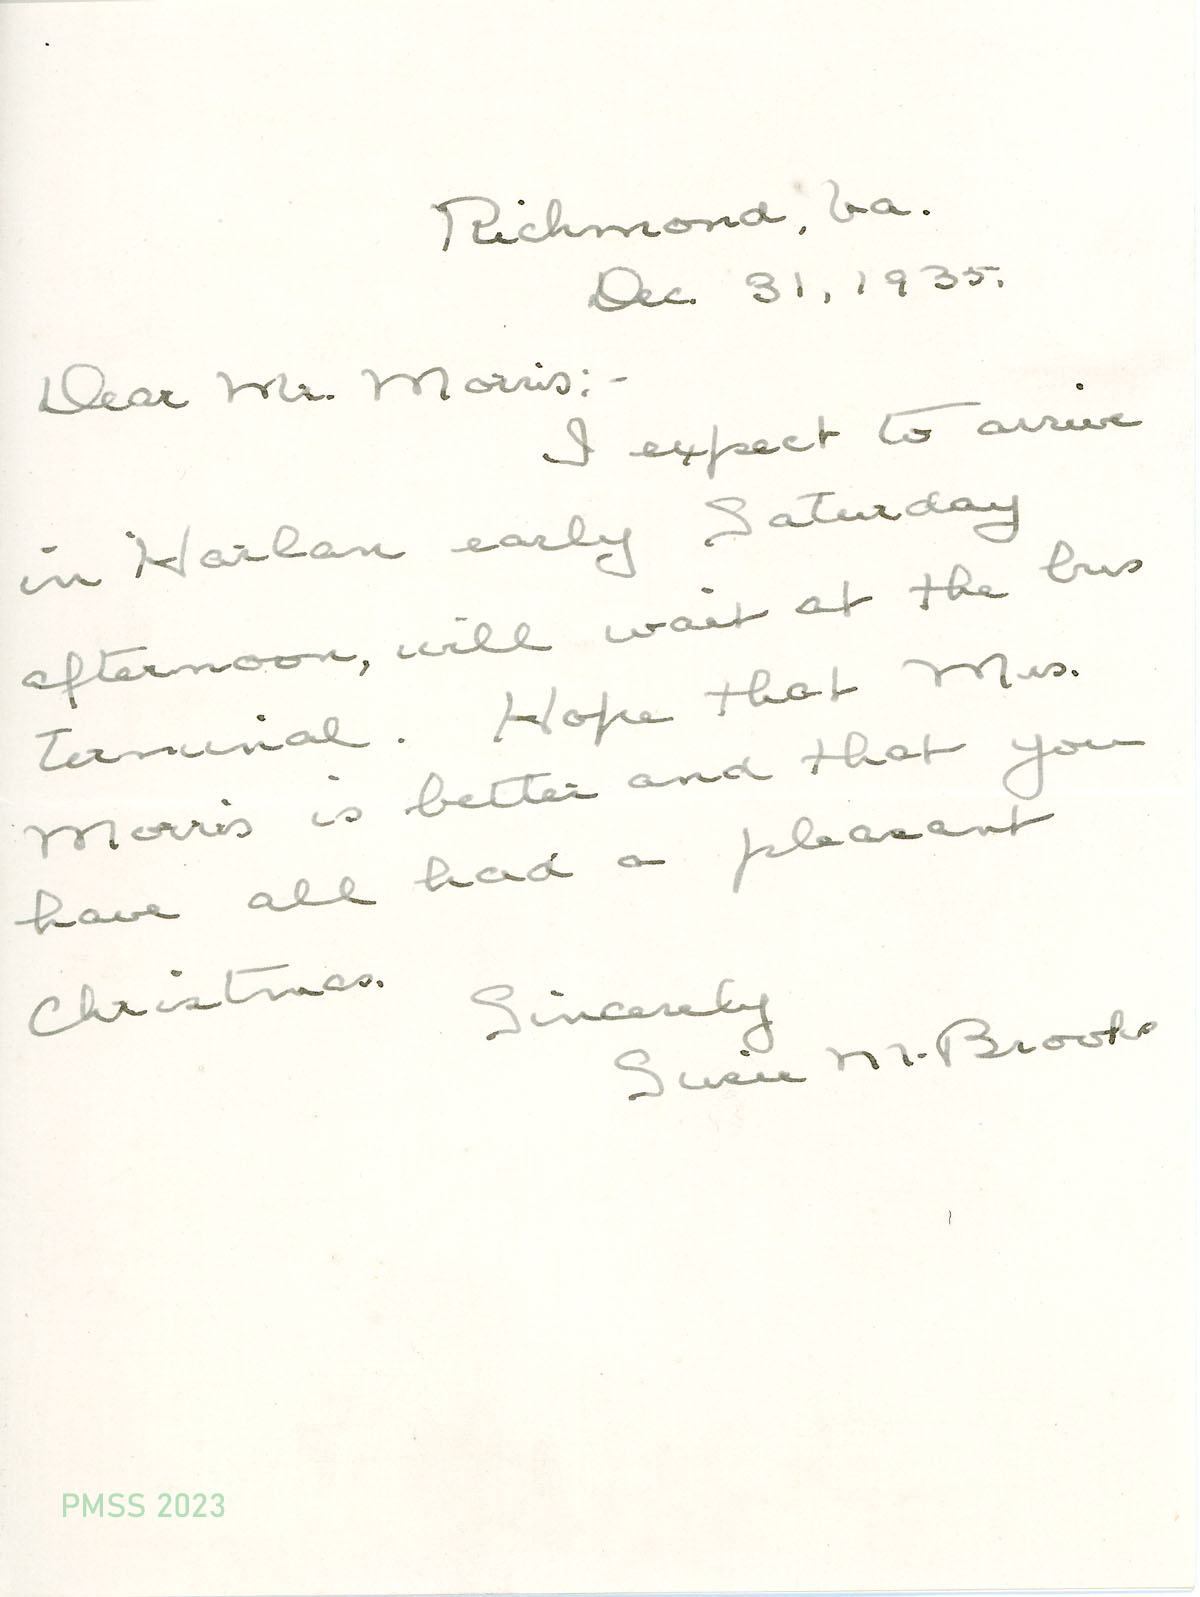 Richmond, Va.
Dec. 31, 1935.
Dear Mr. Morris:-
I expect to arrive
in Harlan early Saturday
afternoon, will wait at the bus
terminal. Hope that Mrs.
Morris is better and that you
have all had a pleasant
Christmas.
Sincerely
Susie M. Brooks
PMSS 2023